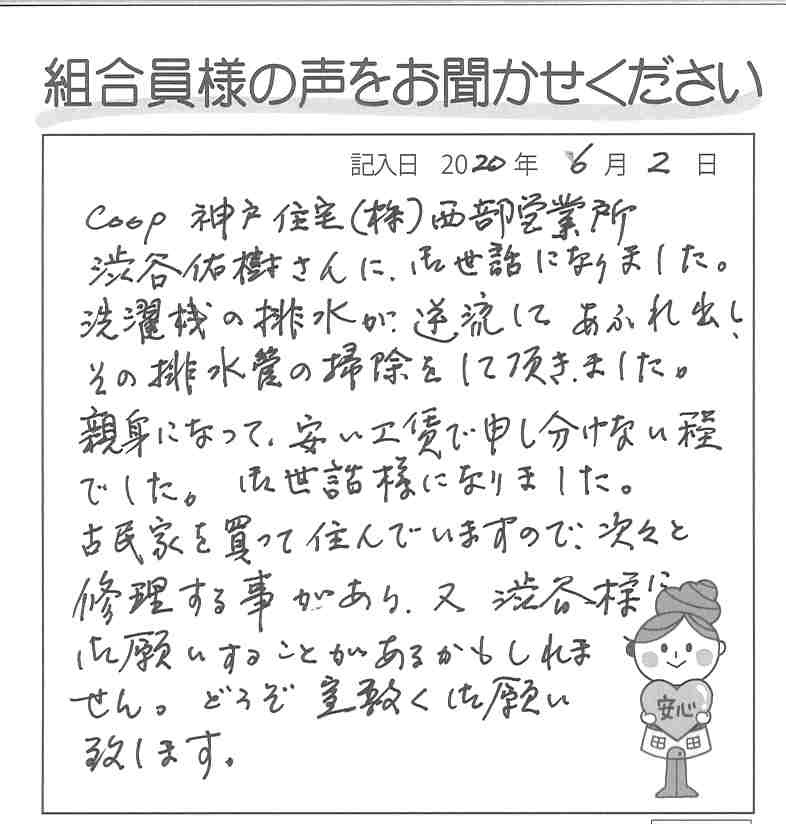 組合員様の声をお聞かせください
記入日 2020年 6月 2日
Coop 神戸住宅(株)西部営業所
渋谷佑樹さんに、御世話になりました。
洗濯機の排水が、逆流して あふれ出し、
その排水管の掃除をして頂きました。
親身になって、安い工賃で申し分けない程
でした。 御世話様になりました。
古民家を買って住んでいますので、次々と
修理する事があり、又 渋谷様に
御願いすることがあるかもしれま
せん。どうぞ宜敷く御願い
致します。
安心